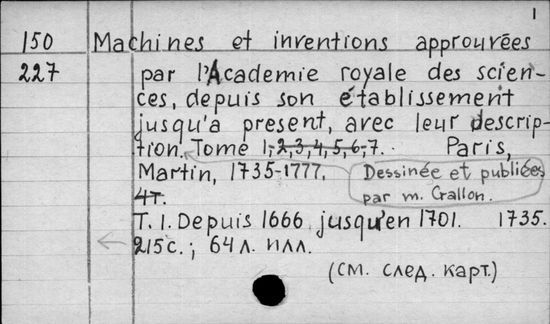 1
150 Machines et inventions approuvées
227 par l'Academie royale des scien-
ces, depuis son établissement
jusqu'a present, avec leur descrip-
tion. Tome 1,-2,3,4,5,6,-7. Paris,
Martin, 1735-1777. Dessinée et publiées
4т. par m. Crallon.
T. 1. Depuis 1666 jusqu'en 1701. 1735.
215 с.; 64 л. илл.
(см. след. карт.)